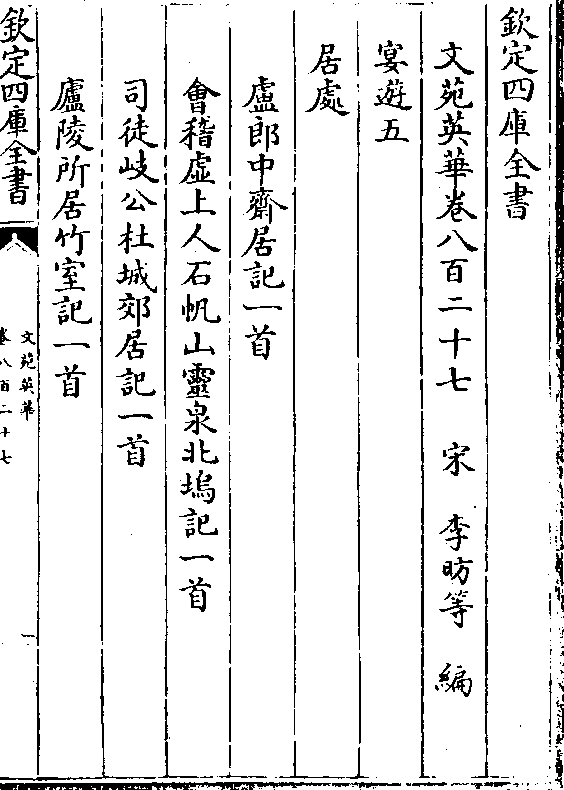 欽定四庫全書
文苑英華卷八百二十七 宋 李昉等 編
宴遊五
居處
盧郎中齋居記一首
會稽虛上人石帆山靈泉北塢記一首
司徒歧公杜城郊居記一首
廬陵所居竹室記一首
欽定四庫全書
文苑英華
卷八百二十七
一